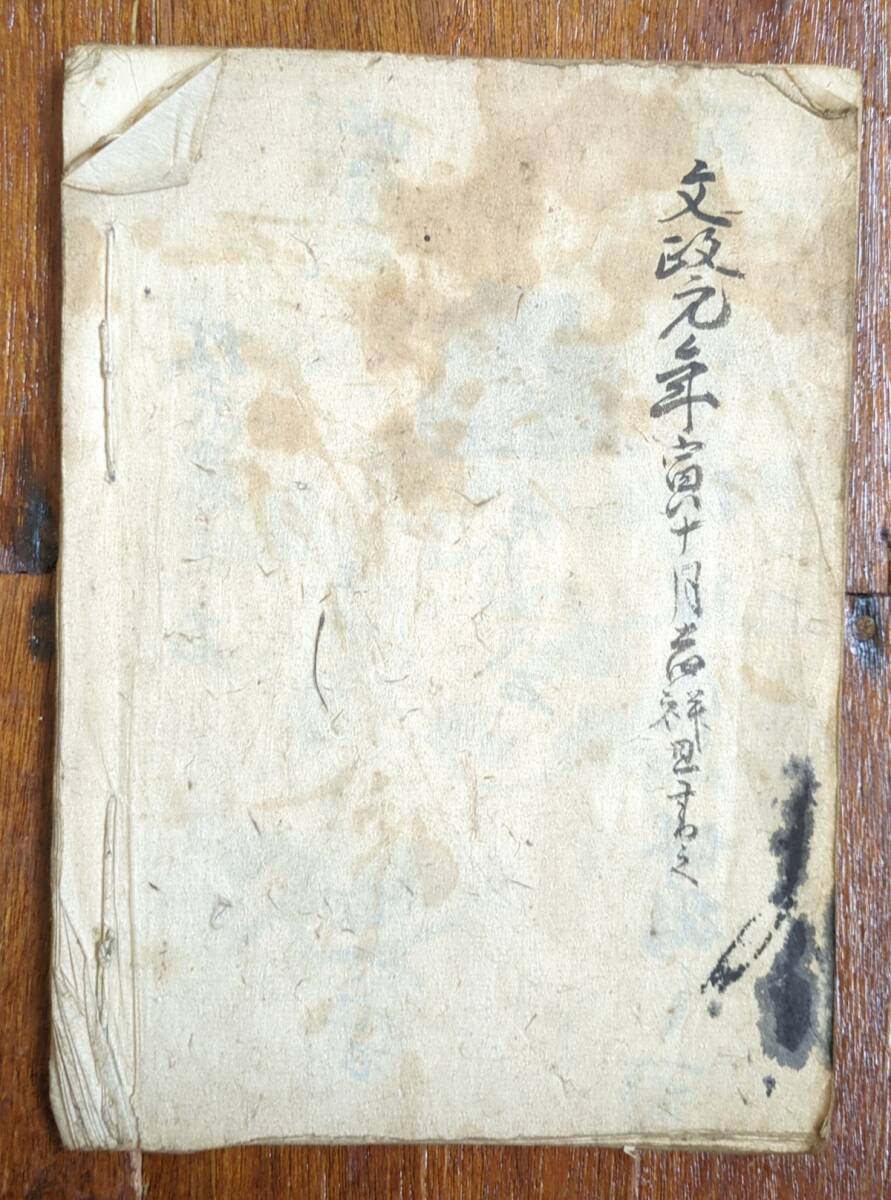 文政元年寅ノ十月吉祥日書之